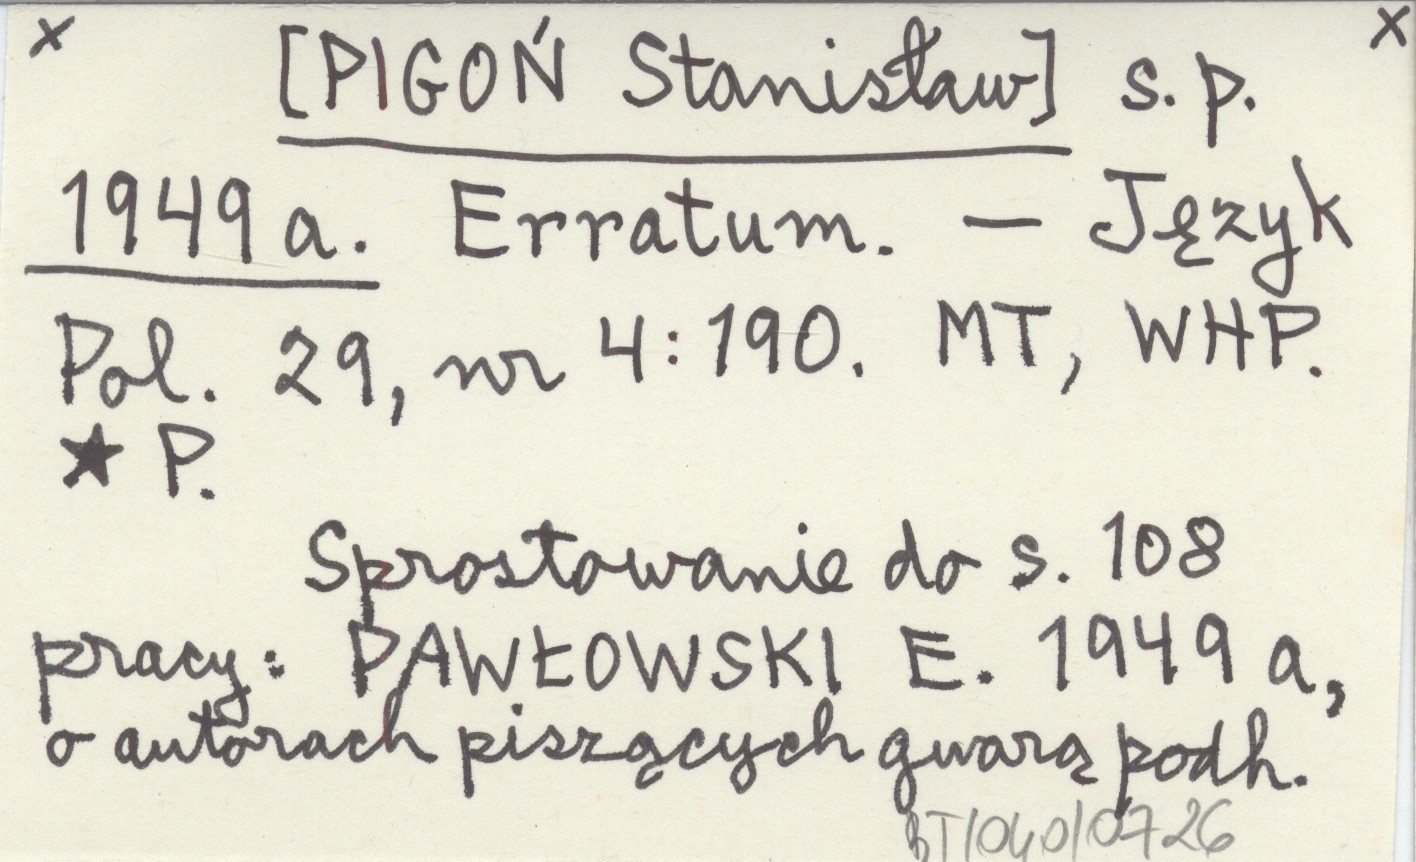 x [PIGOŃ Stanisław] s. p. x
1949 a. Erratum. — Język
Pol. 29, nr 4:190. MT, WHP.
★ P.
Sprostowanie do s. 108
pracy: PAWŁOWSKI E. 1949 a,
o autorach piszących gwarą podh.
BT/040/0726